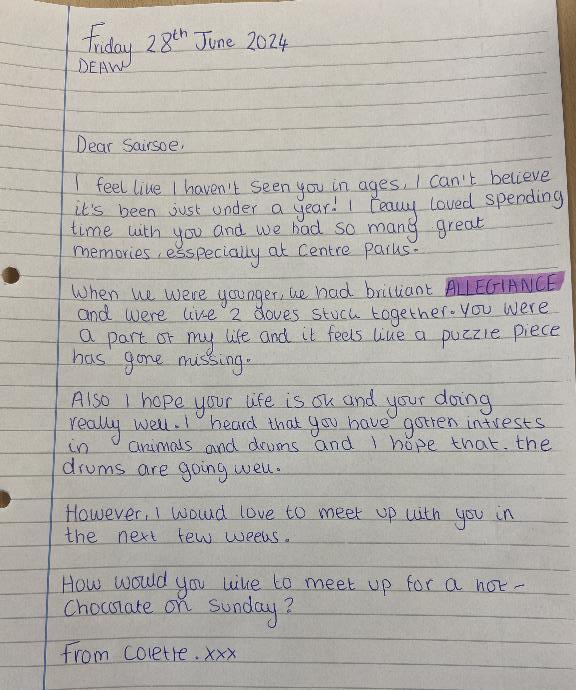 Friday 28th June 2024
DEAW
Dear Sairsoe,
I feel like I haven't seen you in ages, I can't believe
it's been just under a year! I really loved spending
time with you and we had so many great
memories, esspecially at Centre Parks.
When we were younger, we had brilliant ALLEGIANCE
and were like 2 doves stuck together. You were
a part of my life and it feels like a puzzle piece
has gone missing.
Also I hope your life is ok and your doing
really well. I heard that you have gotten intrests
in animals and drums and I hope that. the
drums are going well.
However, I would love to meet up with you in
the next few weeks.
How would you like to meet up for a hot-
chocolate on Sunday?
From Colette. xxx